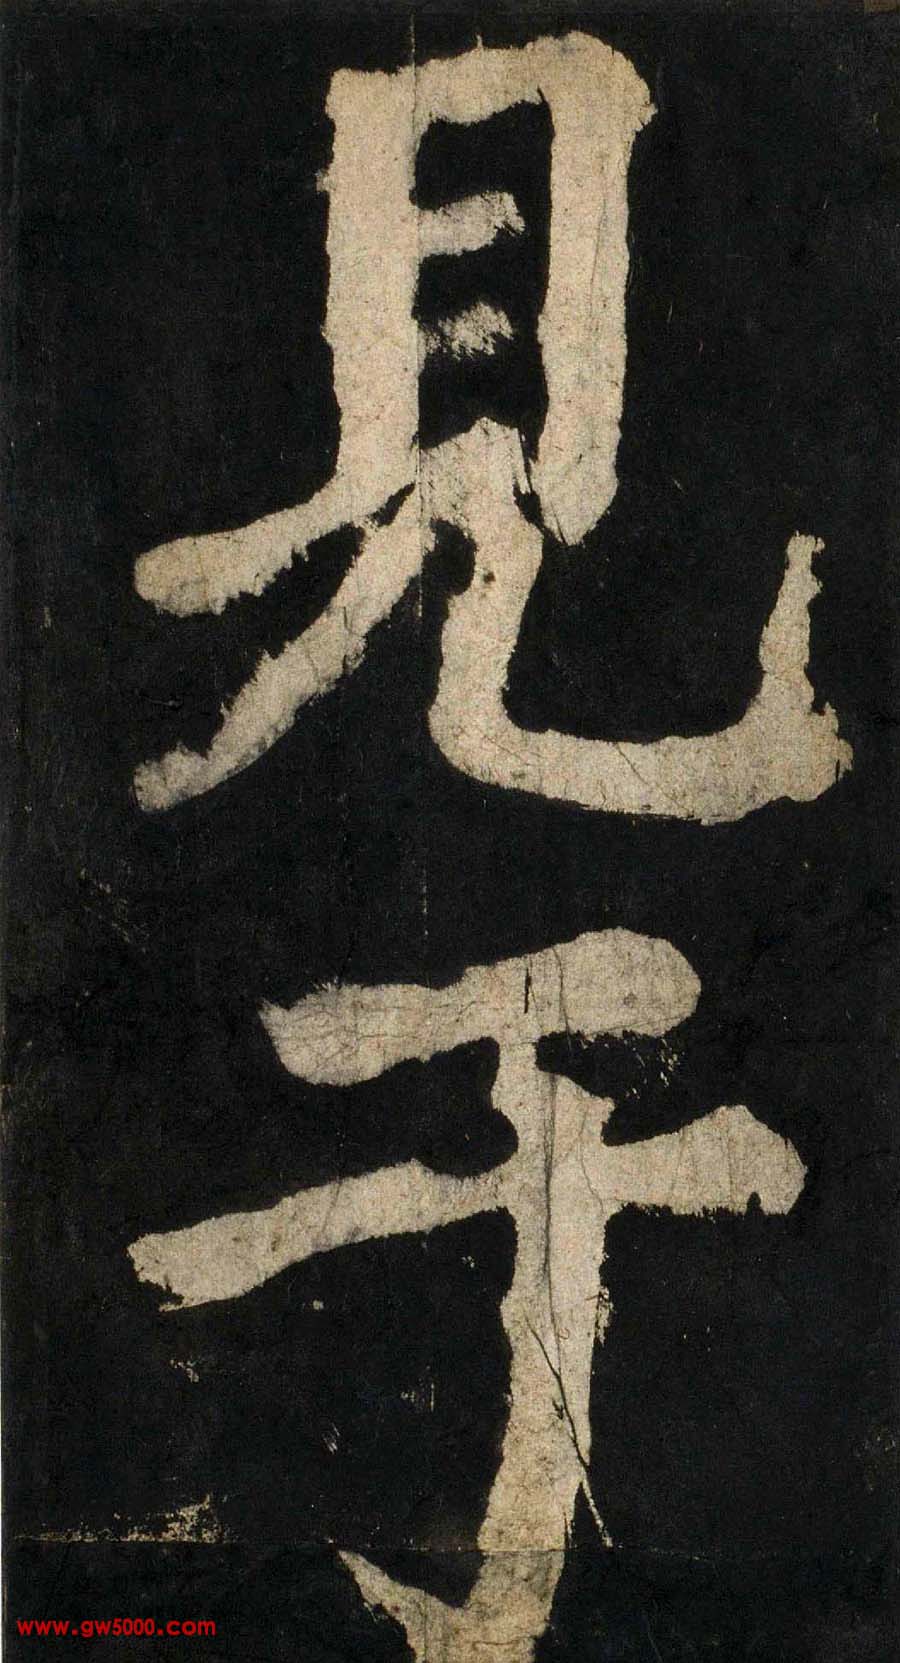 見于
www.gw5000.com